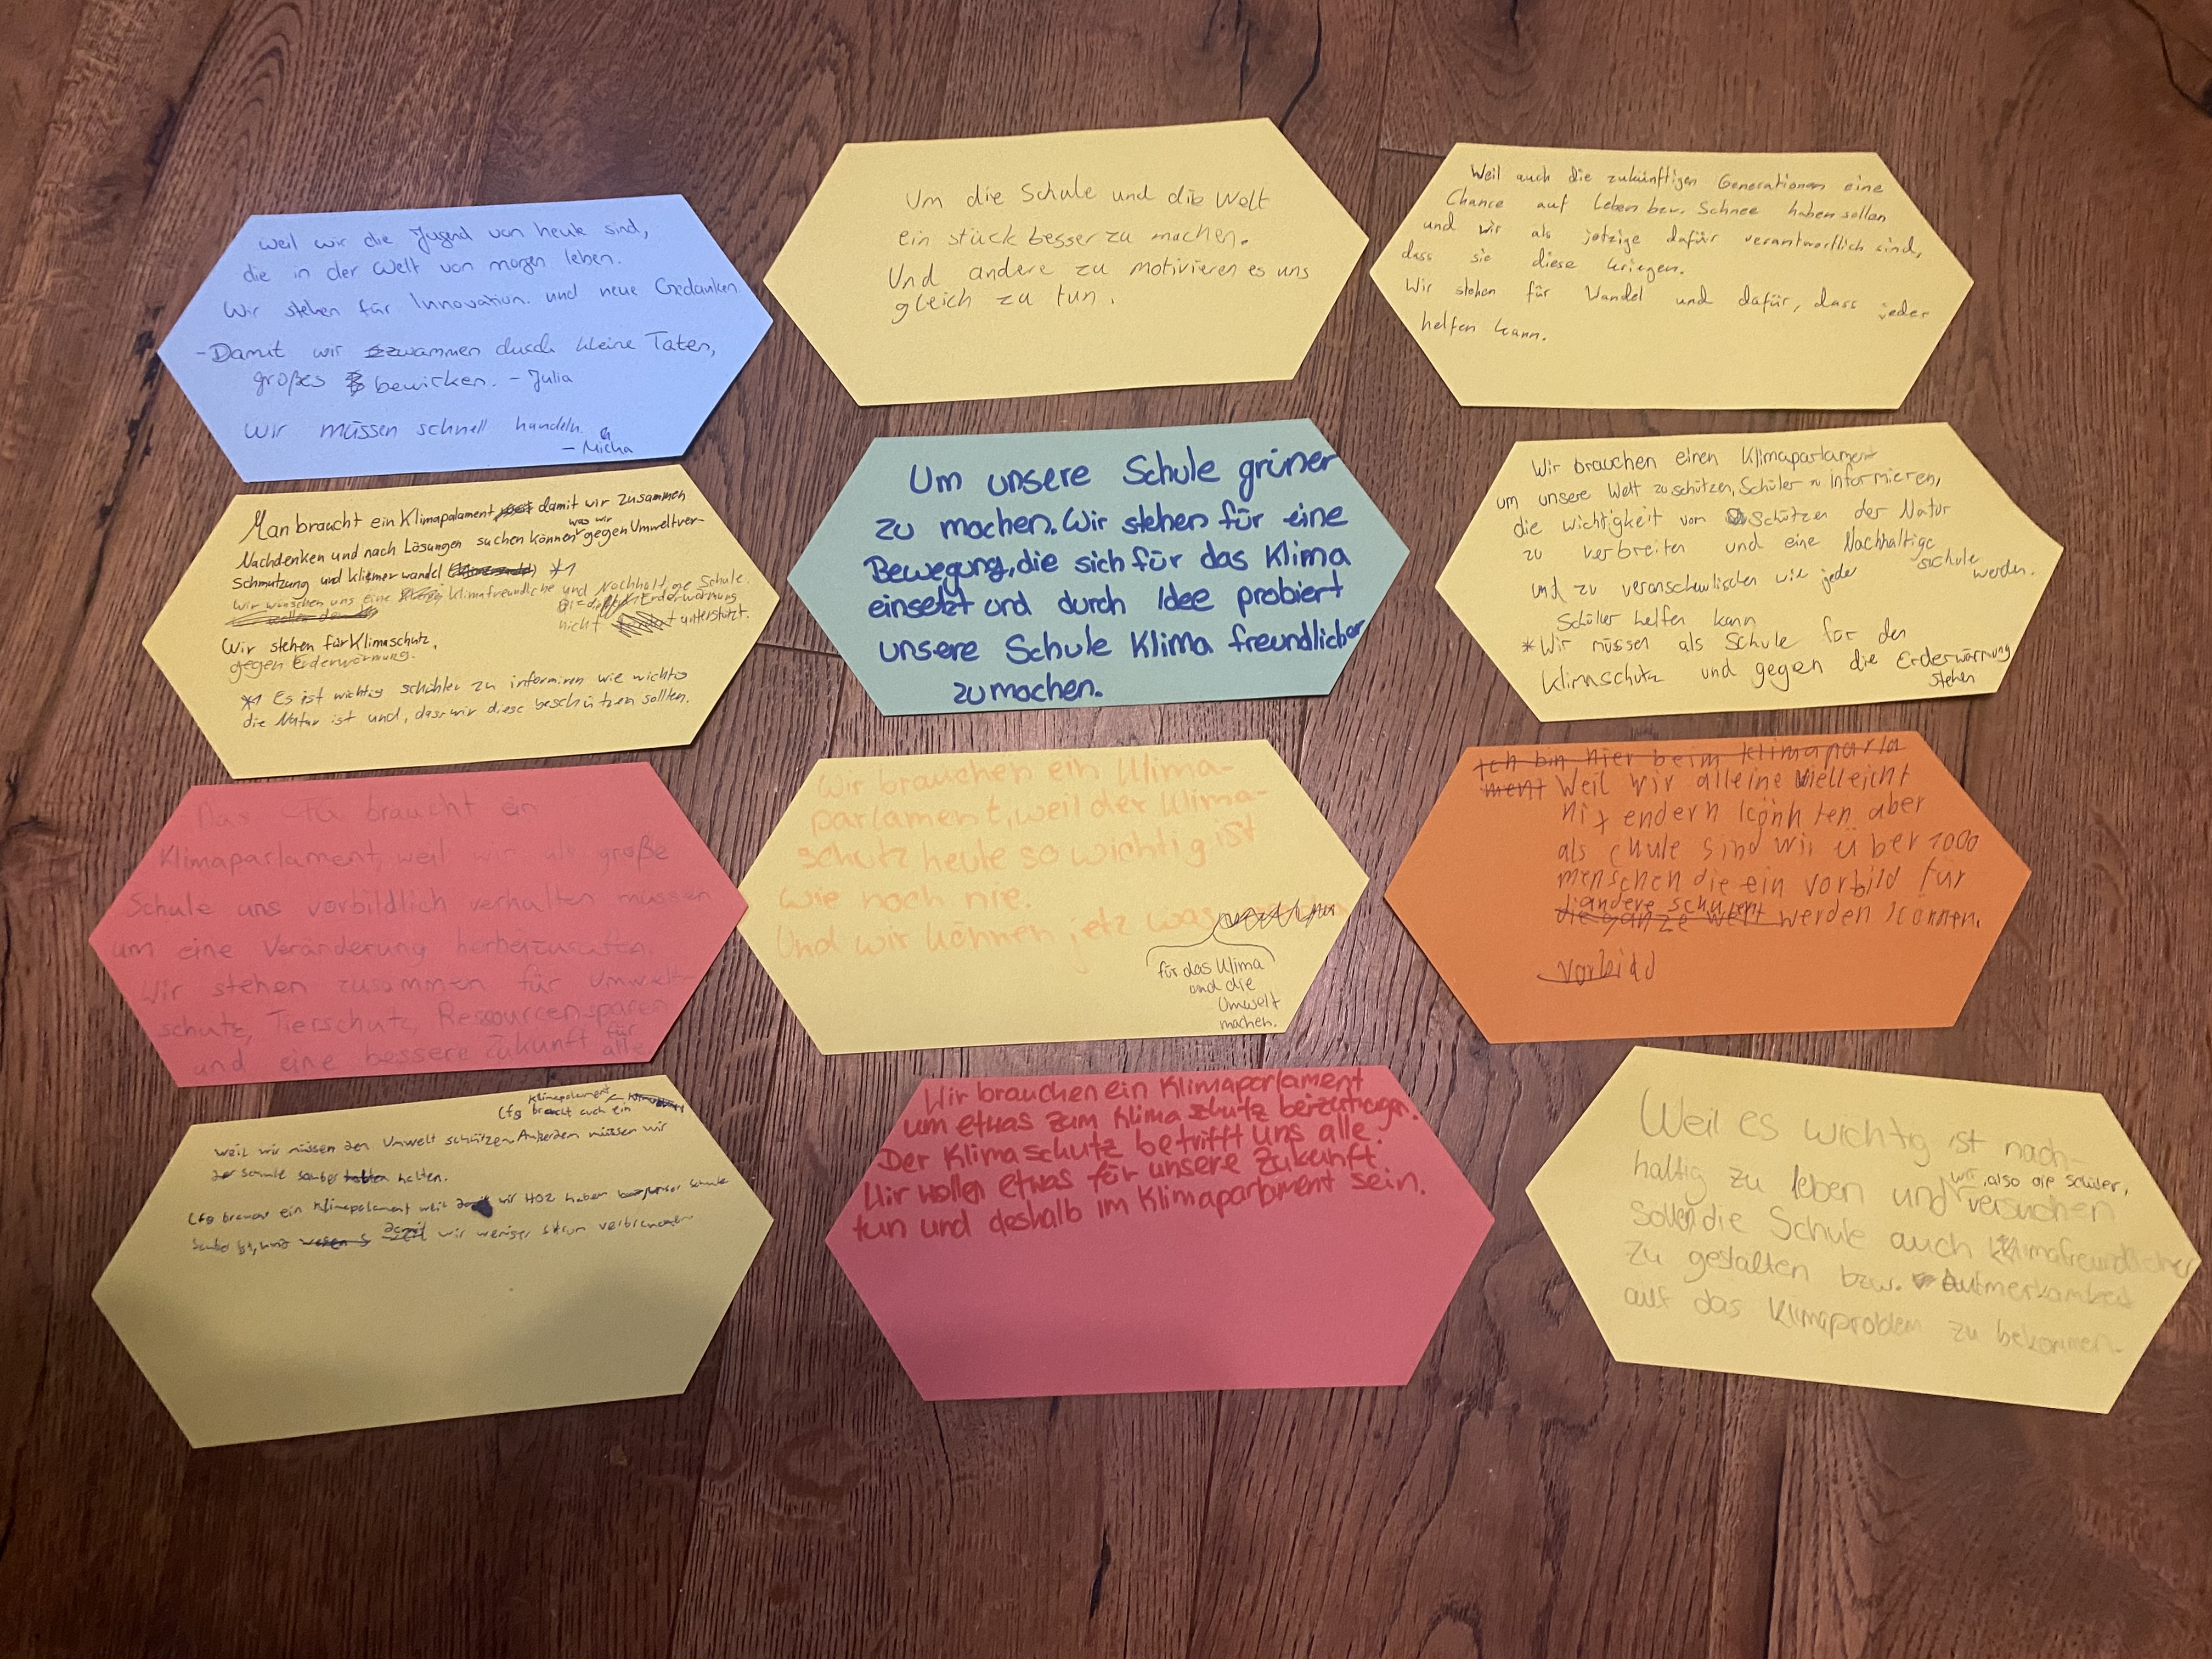 weil wir die Jugend von heute sind,
die in der Welt von morgen leben.
Wir stehen für Innovation. und neue Gedanken
- Damit wir zusammen durch kleine Taten,
großes bewirken. - Julia
Wir müssen schnell handeln.
- Micha
Um die Schule und die Welt
ein stück besser zu machen.
Und andere zu motivieren es uns
gleich zu tun.
Weil auch die zukünftigen Generationen eine
Chance auf Leben bzw. Schnee haben sollen
und wir als jetzige dafür verantwortlich sind,
dass sie diese kriegen.
Wir stehen für Wandel und dafür, dass jeder
helfen kann.
Man braucht ein Klimapalament damit wir zusammen
Nachdenken und nach Lösungen suchen können was wir gegen Umweltver-
schmutzung und klimerwandel *1
Wir wünschen uns eine Klimafreundliche und Nachhaltige Schule.
die Erderwärmung
nicht unterstützt.
Wir stehen für Klimaschutz,
gegen Erderwärmung.
*1 Es ist wichtig schühler zu informiren wie wichtig
die Natur ist und, dass wir diese beschützen sollten.
Um unsere Schule grüner
zu machen. Wir stehen für eine
Bewegung, die sich für das Klima
einsetzt und durch Idee probiert
unsere Schule Klima freundlicher
zu machen.
Wir brauchen einen Klimaparlament
um unsere Welt zu schützen, Schüler zu informieren,
die wichtigkeit vom Schützen der Natur
zu verbreiten und eine Nachhaltige
sschule werden.
und zu veranschaulischen wie jeder
Schüller helfen kann
*Wir müssen als Schule für den
Klimaschutz und gegen die Erderwärmung
stehen
Das CFG braucht ein
Klimaparlament, weil wir als große
Schule uns vorbildlich verhalten müssen
um eine Veränderung herbeizurufen.
Wir stehen zusammen für Umwelt-
schutz, Tierschutz, Ressourcensparen
und eine bessere Zukunft für
alle
Wir brauchen ein Klima-
parlament, weil der Klima-
schutz heute so wichtig ist
wie noch nie.
Und wir können jetz was
für das Klima
und die
Umwelt
machen.
Ich bin hier beim klimaparla
ment Weil wir alleine vielleicht
nix endern könnten aber
als chule sind wir über 1000
menschen die ein vorbild für
andere schulen
die ganze welt werden können.
vorbild
Klimapalament
Cfg braucht auch ein
weil wir müssen den Umwelt schützen. Außerdem müssen wir
der schule sauber halten.
Cfg braucht ein Klimapalament weil wir HO2 haben unser schule
wir weniger strom verbrauchen
Wir brauchen ein Klimaparlament
um etwas zum Klima schutz beizutragen.
Der Klimaschutz betrifft uns alle.
Wir wollen etwas für unsere Zukunft
tun und deshalb im Klimaparlament sein.
Weil es wichtig ist nach-
haltig zu leben und wir, also die schüler, versuchen
sollen die Schule auch klimafreundlicher
zu gestalten bzw. Aufmerksamkeit
auf das Klimaproblem zu bekommen.